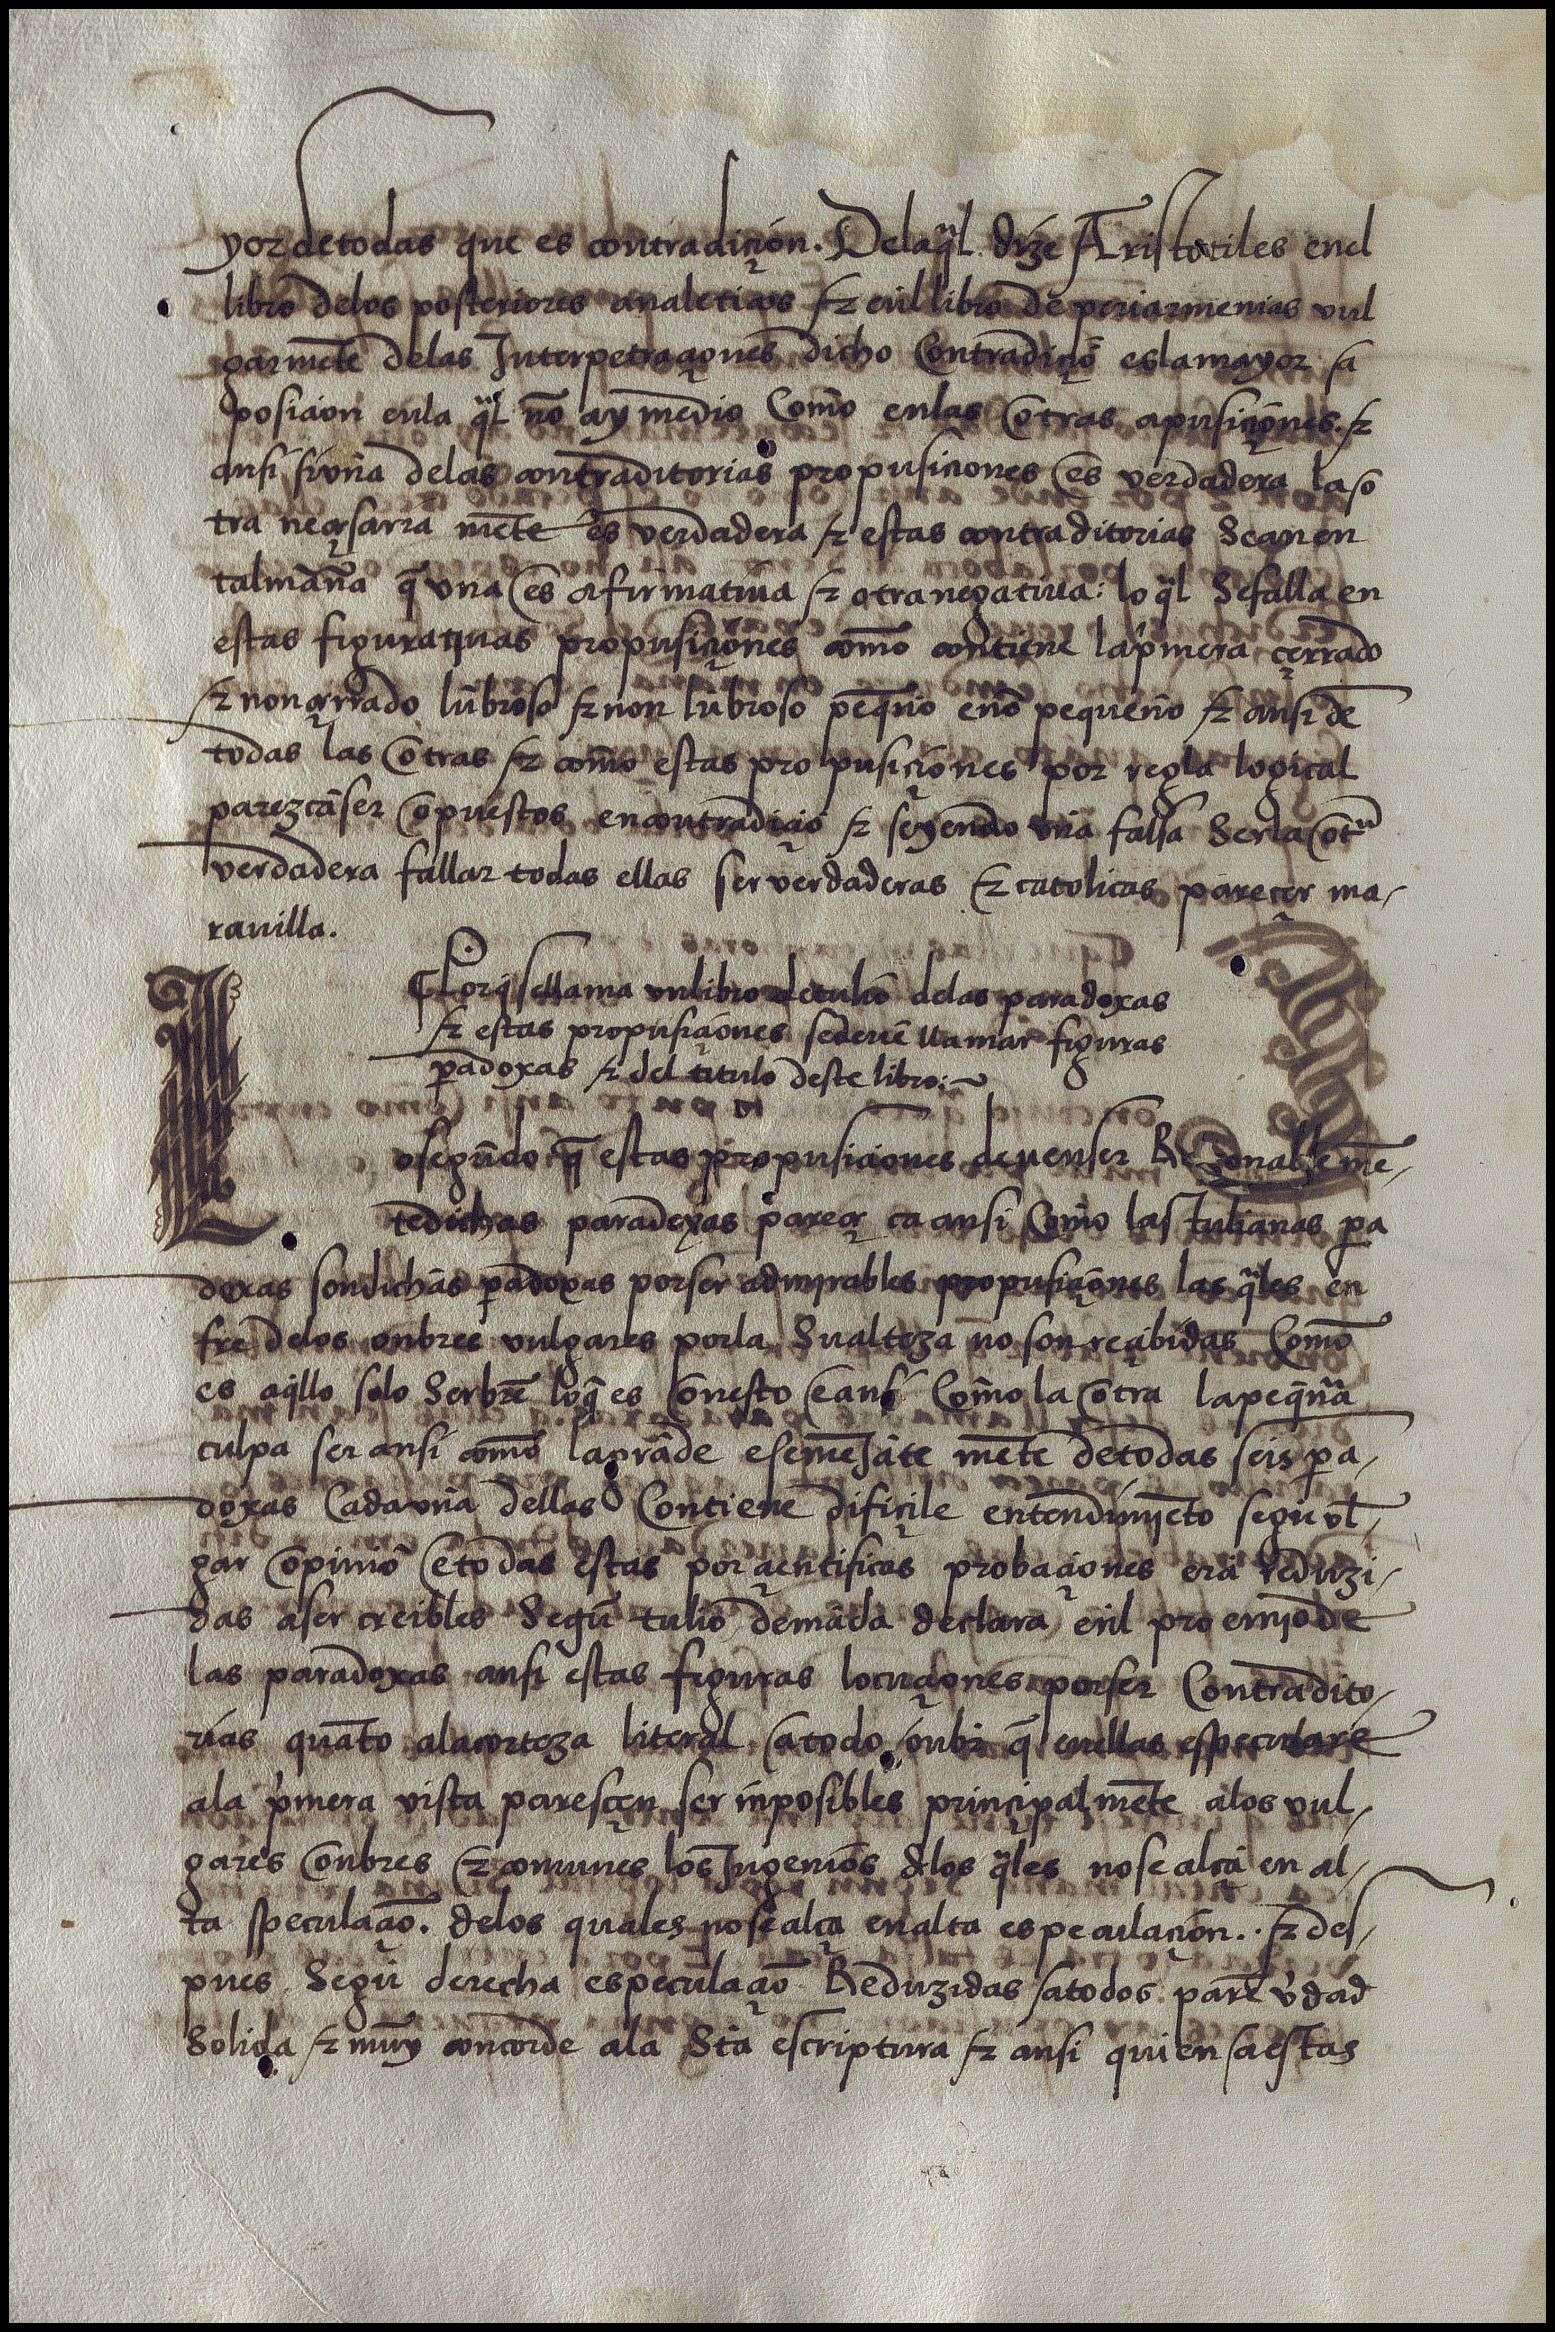 yor de todas que es contradiçion. Dela q̃l dize Aristotiles enel
libro delos posteriores analeticos ⁊ enl libro de periarmenias vul
garmẽte delas Interpetraçiones dicho Contradiçiõ es la mayor a
posiçion enla q̃l nõ ay medio Como enlas otras apusiçiones. ⁊
ansi si vña delas contraditorias propusiciones es verdadera la o
tra neçesaria mẽte es verdadera ⁊ estas contraditorias Sean en
tal mãña q̃ vna es afirmatiua ⁊ otra negatiua: lo q̃l Se falla en
estas figuratiuas propusiçiones como contiene la p'mera çerrado
⁊ non çerrado lũbroso ⁊ non lũbroso peq̃no enõ pequeño ⁊ ansi de
todas las otras ⁊ como estas propusiçiones por regla logical
parezcã ser opuestos en contradiçiõ ⁊ seyendo vña falsa Ser la otª
verdadera fallar todas ellas ser verdaderas ⁊ catolicas pareçer ma-
rauilla.
¶ Porq̃ se llama vn libro de tulio delas paradoxas
⁊ estas propusiçiones se deuẽ llamar figuras
p̃adoxas ⁊ del titulo deste libro:~
L
o segũdo q̃ estas propusiciones deuen ser Razonableme-
te dichas paradoxas pareçe ca ansi Como las tulianas p̃a
doxas son dichas p̃adoxas por ser admirables propusiçiones las q̃les en
fre delos onbres vulgares por la Su alteza no son reçibidas Como
es aq̃llo solo Ser bẽ lo q̃ es onesto e ansi Como la otra la peq̃ña
culpa ser ansi como la grãde e semeJãte mẽte de todas seis p̃a-
doxas Cada vña dellas Contiene difiçile entendimiẽto segũ vl-
gar opiniõ e todas estas por çientificas probaçiones erã reduzi-
das a ser creibles Segũ tulio demãda declara enl proemio de
las paradoxas ansi estas figuras locuçiones por ser Contradito-
rias quãto ala corteza literal a todo onbr q̃ en ellas especulare
ala p'mera vista paresçen ser inposibles principalmẽte alos vul-
gares onbres ⁊ comunes los Ingenios delos q̃les no se alçã en al-
ta speculaçiõ. delos quales no se alça en alta espeaulaçion.. ⁊ des-
pues Segũ derecha especulaçiõ Reduzidas a todos parẽ v'dad
Solida ⁊ muy concorde ala Stã escriptura ⁊ ansi quien a estas